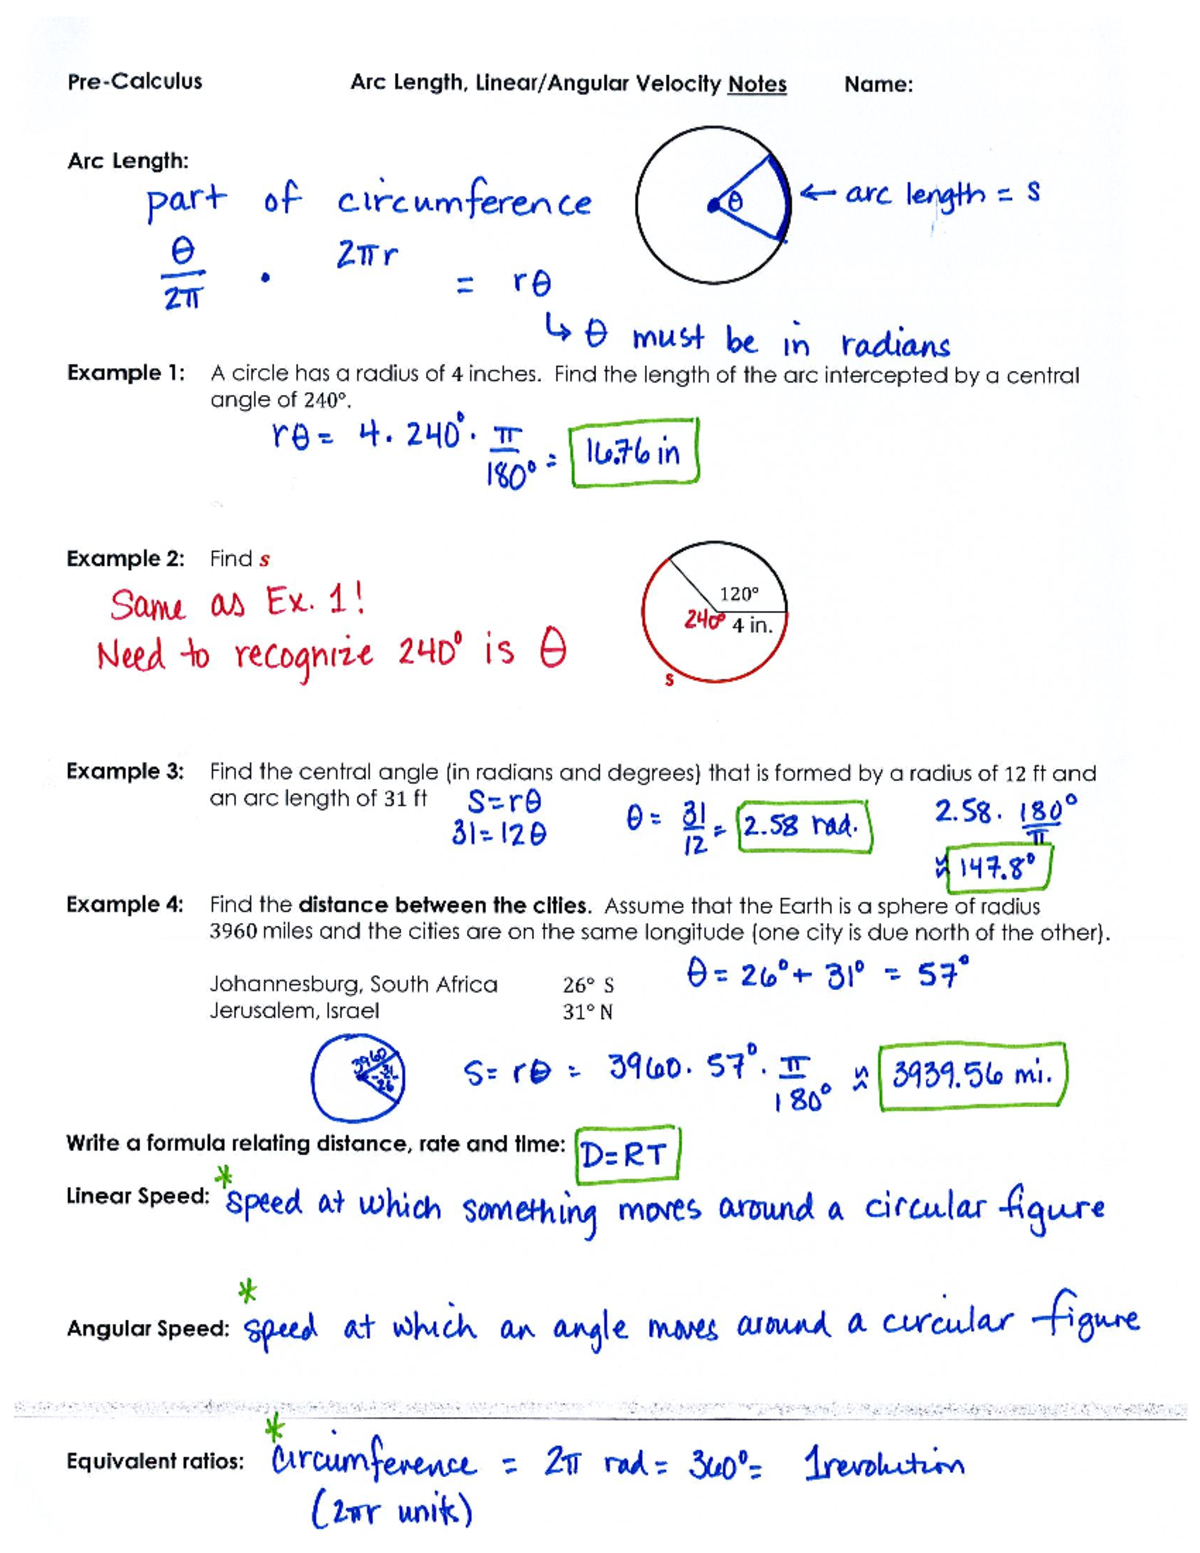 Pre-Calculus Arc Length, Linear/Angular Velocity Notes Name:
Arc Length:
part of circumference
θ/2π · 2πr = rθ
← arc length = s
↳ θ must be in radians
Example 1: A circle has a radius of 4 inches. Find the length of the arc intercepted by a central
angle of 240°.
rθ = 4 · 240° · π/180° = 16.76 in
Example 2: Find s
Same as Ex. 1!
Need to recognize 240° is θ
120°
240° 4 in.
s
Example 3: Find the central angle (in radians and degrees) that is formed by a radius of 12 ft and
an arc length of 31 ft
S=rθ
31=12θ
θ = 31/12 = 2.58 rad.
2.58 · 180°/π
≈ 147.8°
Example 4: Find the distance between the cities. Assume that the Earth is a sphere of radius
3960 miles and the cities are on the same longitude (one city is due north of the other).
θ = 26° + 31° = 57°
Johannesburg, South Africa 26° S
Jerusalem, Israel 31° N
3960
31
26
S= rθ = 3960 · 57° · π/180° ≈ 3939.56 mi.
Write a formula relating distance, rate and time: D=RT
Linear Speed: *speed at which something moves around a circular figure
Angular Speed: *speed at which an angle moves around a circular figure
Equivalent ratios: *circumference = 2π rad = 360° = 1 revolution
(2πr units)